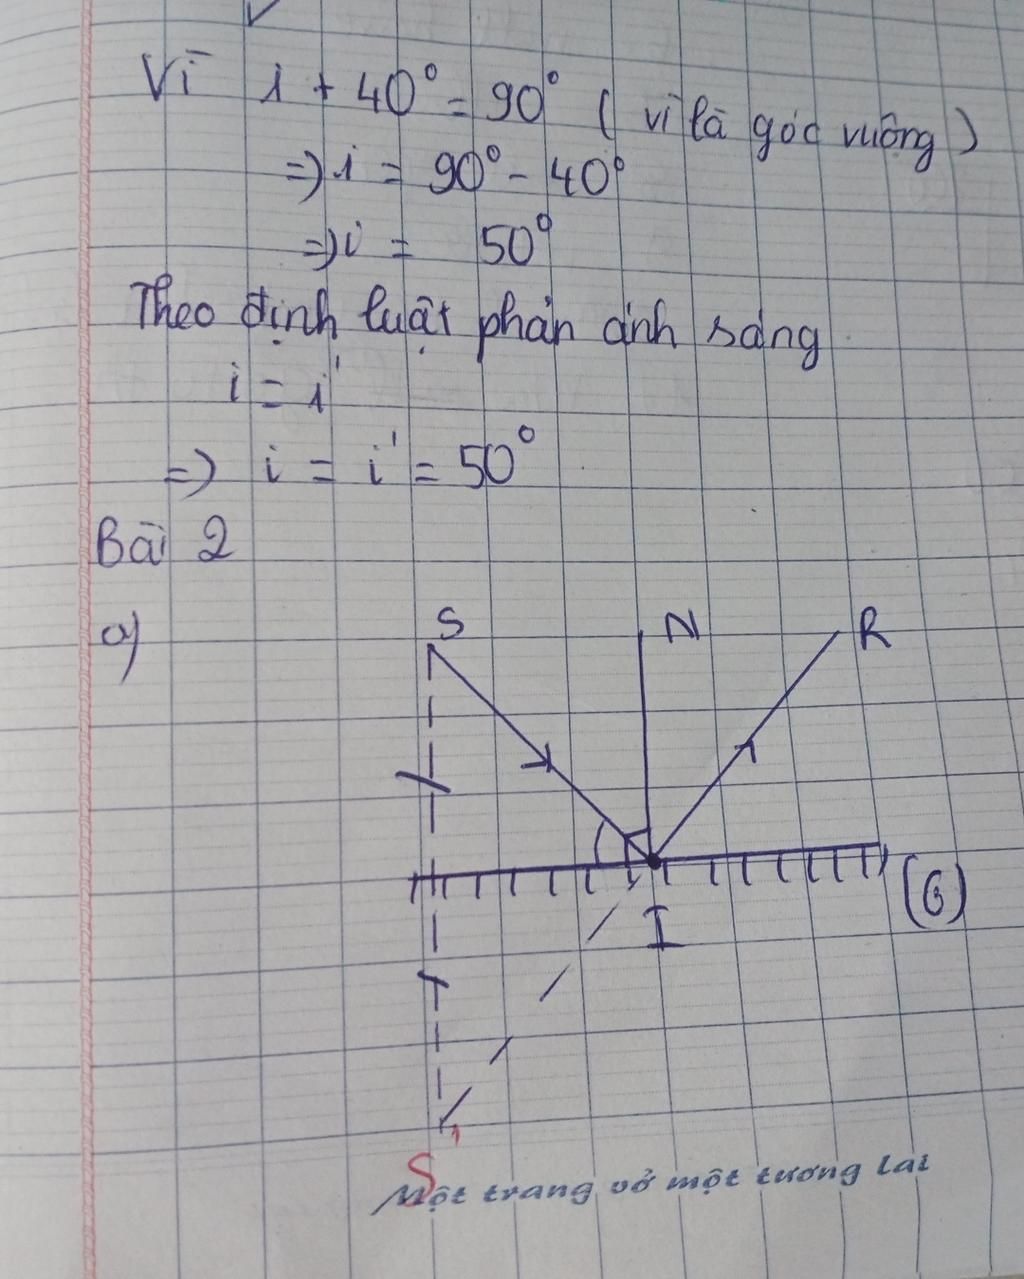 Vì i + 40° = 90° ( vì là góc vuông )
=> i = 90° - 40°
=> i = 50°
Theo định luật phản ánh sáng
i = i'
=> i = i' = 50°
Bài 2
a)
S N R
I (G)
S'
Một trang vở một tương lai